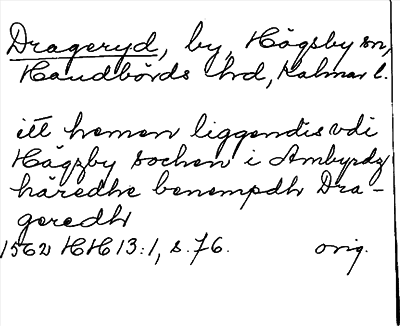 Drageryd, by, Högsby sn,
Handbörds hd, Kalmar l.
itt heman liggendis vdi
Högzby sochen i Ambyrdz
häredhe benempdh Dra-
geredh
1562 HH 13:1, s. 76. orig.